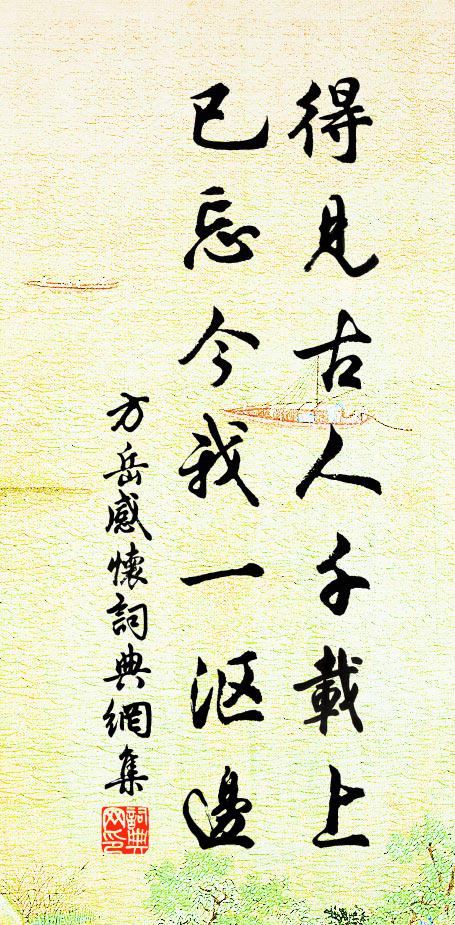 得見古人千載上
已忘今我一漚邊
方岳感懷詞典網集
詞典網印